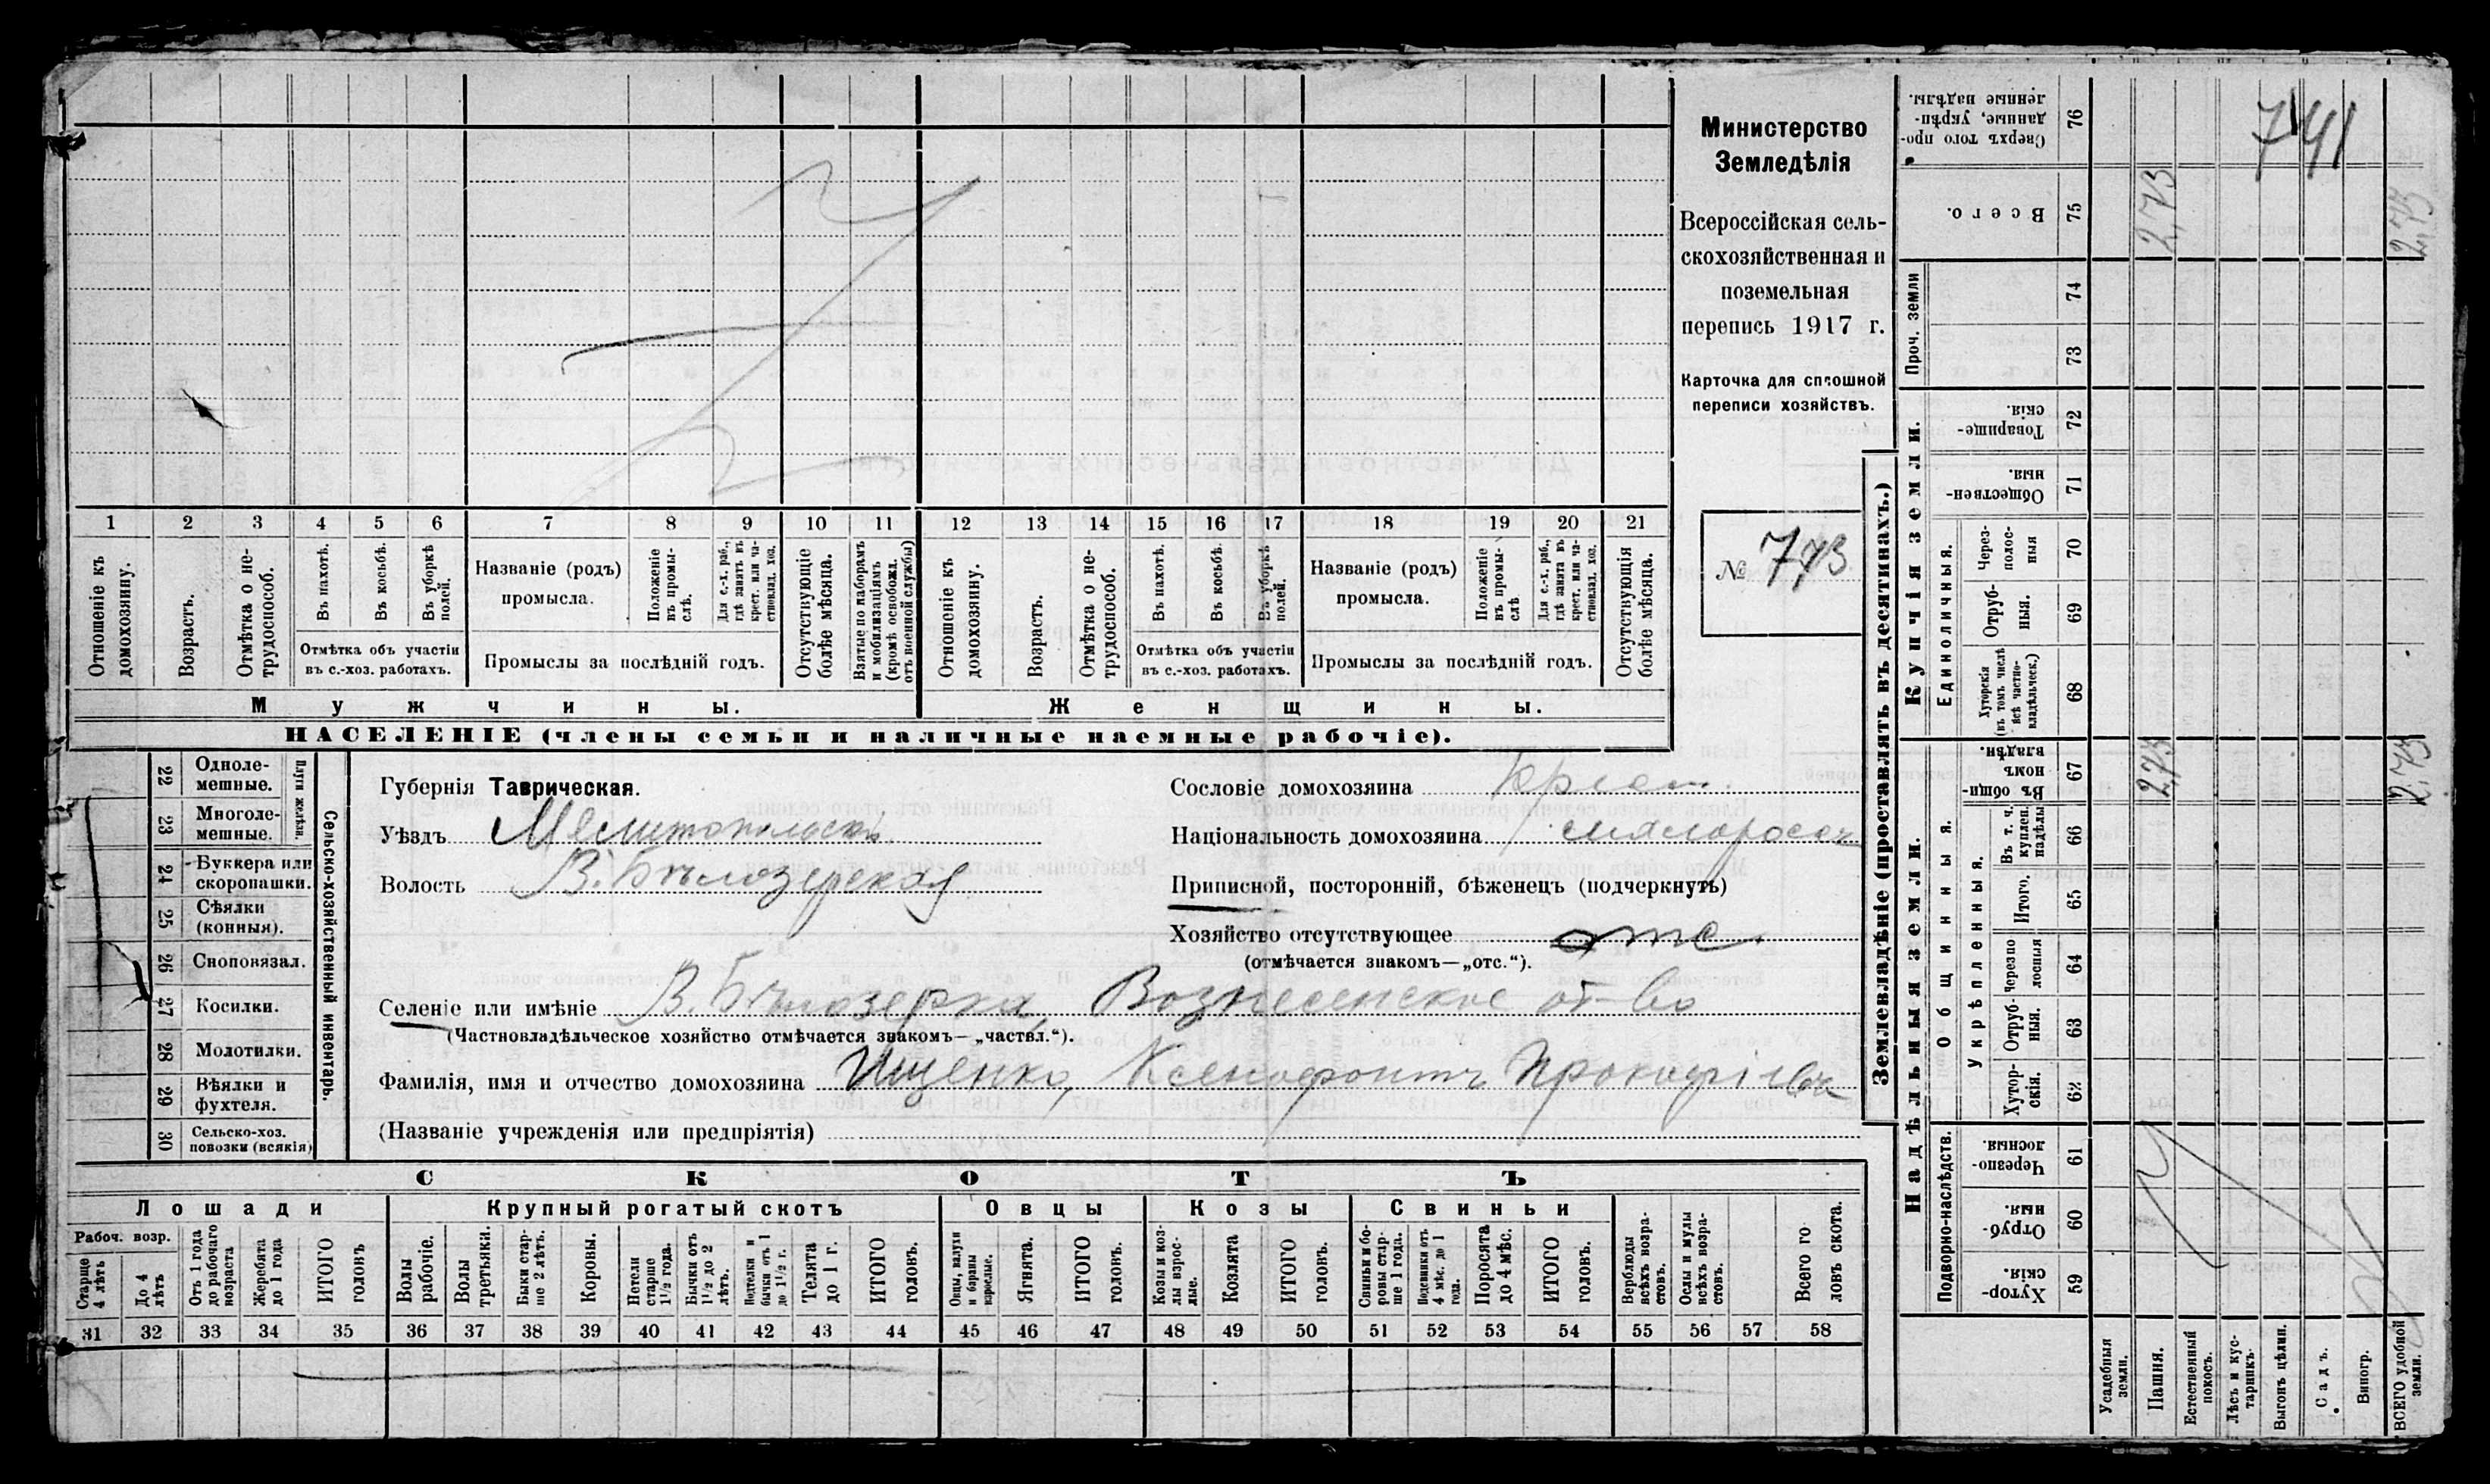 Министерство
Земледѣлія
Всероссійская сель-
скохозяйственная и
поземельная
перепись 1917 г.
Карточка для сплошной
переписи хозяйствъ.
№ 773
741
1 2 3 4 5 6 7 8 9 10 11 12 13 14 15 16 17 18 19 20 21
Отношеніе къ домохозяину.
Возрастъ.
Отмѣтка о не-трудоспособ.
Въ пахотѣ.
Въ косьбѣ.
Въ уборкѣ полей.
Отмѣтка объ участіи
въ с.-хоз. работахъ.
Названіе (родъ)
промысла.
Положеніе въ промы-слѣ.
Для с.-х. раб., гдѣ занятъ въ крест. или ча-стновлад. хоз.
Промыслы за послѣдній годъ.
Отсутствующіе болѣе мѣсяца.
Взятые по наборамъ и мобилизаціямъ (кромѣ освобожд. отъ военной службы)
Отношеніе къ домохозяину.
Возрастъ.
Отмѣтка о не-трудоспособ.
Въ пахотѣ.
Въ косьбѣ.
Въ уборкѣ полей.
Отмѣтка объ участіи
въ с.-хоз. работахъ.
Названіе (родъ)
промысла.
Положеніе въ промы-слѣ
Для с.-х. раб., гдѣ занята въ крест. или ча-стновлад. хоз.
Промыслы за послѣдній годъ.
Отсутствующія болѣе мѣсяца.
Мужчины.
Женщины.
НАСЕЛЕНІЕ (члены семьи и наличные наемные рабочіе).
22 Одноле-мешные.
23 Многоле-мешные.
Плуги желѣзн.
24 Буккера или скоропашки.
25 Сѣялки (конныя).
26 Сноповязал.
27 Косилки.
28 Молотилки.
29 Вѣялки и фухтеля.
30 Сельско-хоз. повозки (всякія)
Сельско-хозяйственный инвентарь.
Губернія Таврическая.
Уѣздъ Мелитопольскій
Волость В. Бѣлозерская
Сословіе домохозяина Крест.
Національность домохозяина малоросъ
Приписной, посторонній, бѣженецъ (подчеркнуть)
Хозяйство отсутствующее отс.
(отмѣчается знакомъ—„отс.“).
Селеніе или имѣніе В. Бѣлозерка, Вознесенское об-во
(Частновладѣльческое хозяйство отмѣчается знакомъ—„частвл.“).
Фамилія, имя и отчество домохозяина Ищенко, Ксенофонтъ Прокофіевъ
(Названіе учрежденія или предпріятія)
СКОТЪ
Лошади
Крупный рогатый скотъ
Овцы
Козы
Свиньи
Рабоч. возр.
Старше 4 лѣтъ
До 4 лѣтъ
Отъ 1 года до рабочаго возраста
Жеребята до 1 года
ИТОГО головъ
Волы рабочіе.
Волы третьяки.
Быки стар-ше 2 лѣтъ.
Коровы.
Нетели старше 1½ года.
Бычки отъ 1½ до 2 лѣтъ.
Подтелки и бычки отъ 1 до 1½ г.
Телята до 1 г.
ИТОГО головъ.
Овцы, валухи и бараны взрослые.
Ягнята.
ИТОГО головъ.
Козы и коз-лы взрос-лые.
Козлята
ИТОГО головъ.
Свиньи и бо-ровы стар-ше 1 года.
Подсвинки отъ 4 мѣс. до 1 года.
Поросята до 4 мѣс.
ИТОГО головъ.
Верблюды всѣхъ возра-стовъ.
Ослы и мулы всѣхъ возра-стовъ.
Всего го ловъ скота.
31 32 33 34 35 36 37 38 39 40 41 42 43 44 45 46 47 48 49 50 51 52 53 54 55 56 57 58
Землевладѣніе (проставлять въ десятинахъ.)
Купчія земли.
Надѣльныя земли.
Сверхъ того про-данные, укрѣп-ленные надѣлы. 76
Всего. 75
2,73
2,73
Проч. земли
74
73
Товарище-скія. 72
Обществен-ныя. 71
Единоличныя.
Через-полос-ныя 70
Отруб-ныя. 69
Хуторскія (въ томъ числѣ всѣ частно-владѣльческ.) 68
Общинныя.
Въ общин-номъ владѣн. 67
2,73
2,73
Укрѣпленныя.
Въ т. ч. куплен. надѣлы 66
Итого. 65
Черезпо лосныя 64
Отруб-ныя. 63
Хутор-скія. 62
Подворно-наслѣдств.
Черезпо-лосныя. 61
Отруб-ныя. 60
Хутор-скія. 59
Усадебныя земли.
Пашня.
Естественный покосъ.
Лѣсъ и кус-тарникъ.
Выгонъ цѣлин.
Садъ.
Виногр.
ВСЕГО удобной земли.